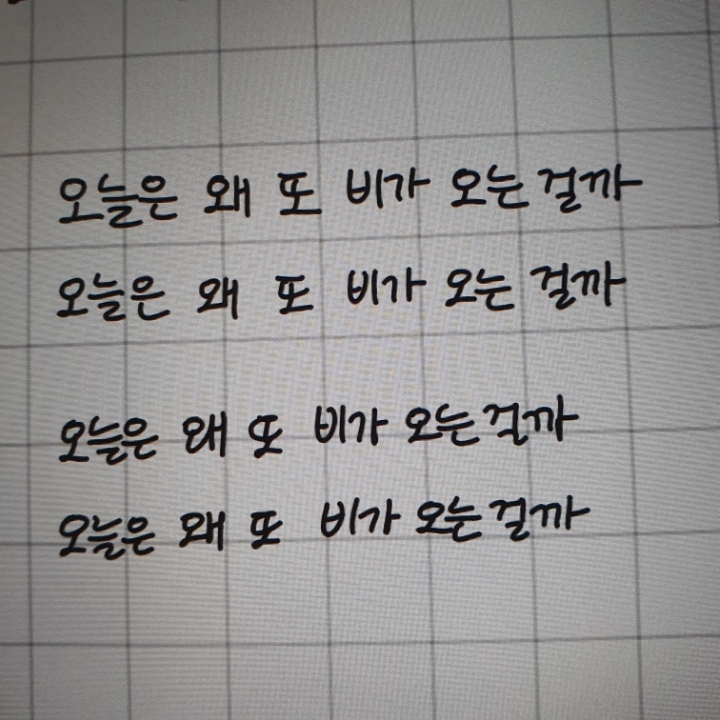 오늘은 왜 또 비가 오는 걸까
오늘은 왜 또 비가 오는 걸까
오늘은 왜 또 비가 오는 걸까
오늘은 왜 또 비가 오는 걸까